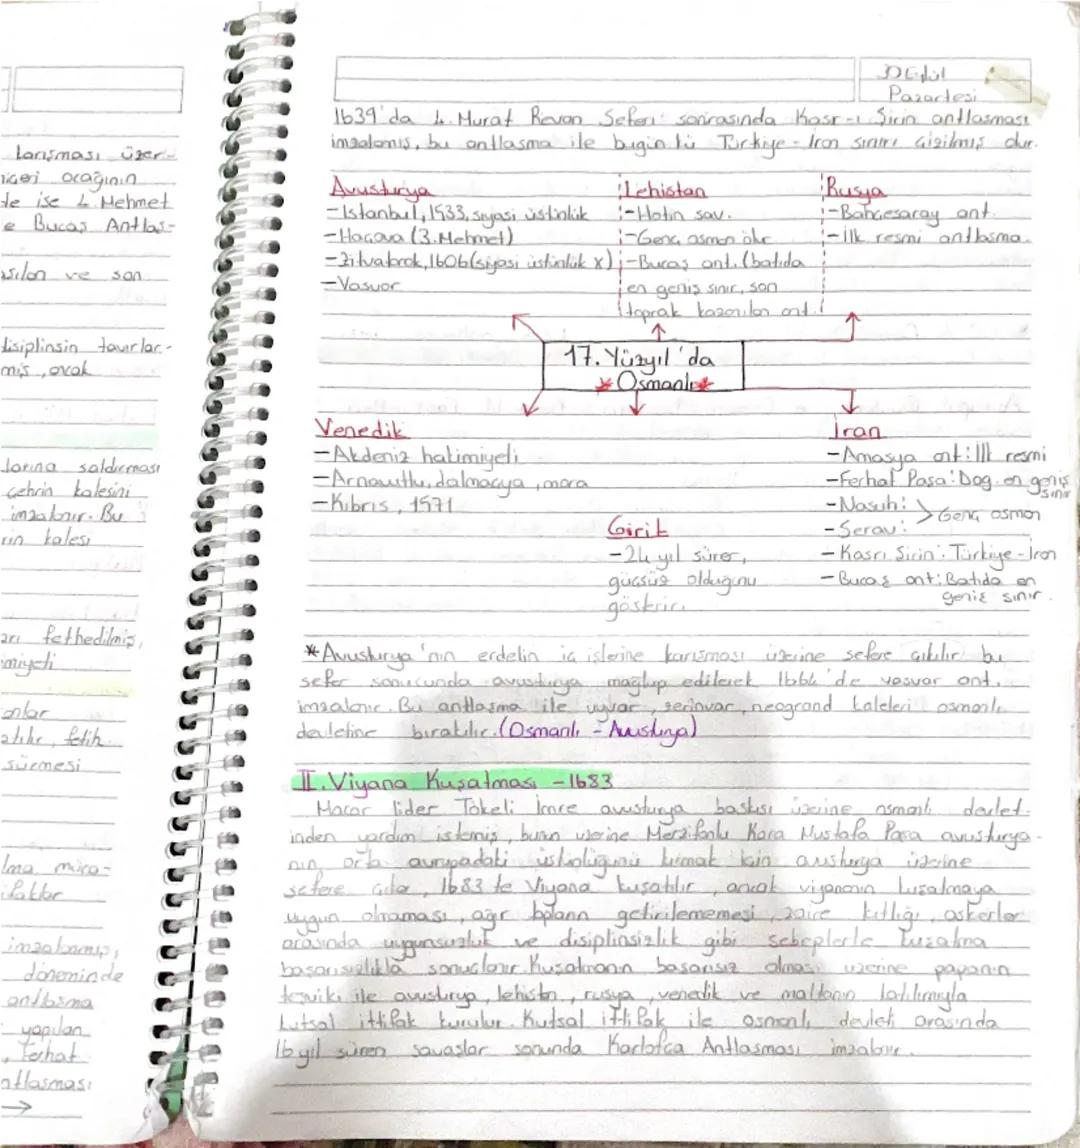 karışması üzeri-
niçeri ocağının
de ise 4. Mehmet
e Bucaş Antlaş-
asılan ve son
disiplinsin tavırlar-
mış, ocak
larına saldırması
şehrin kalesini
imzalanır. Bu
rın kalesi
arı fethedilmiş,
imiyeti
anlar
atılır, fetih
sürmesi
lma müca-
ifaklar
imzalanmış,
döneminde
antlaşma
yapılan
, Ferhat
atlaşması
→
30 Eylül
Pazartesi
1639'da 4. Murat Revan Seferi sonrasında Kasr-ı Şirin antlaşması
imzalamış, bu antlaşma ile bugün kü Türkiye-İran sınırı çizilmiş dur.
Avusturya
-İstanbul, 1533, siyasi üstünlük
-Haçova (3. Mehmet)
-Zitvatorok, 1606 (siyasi üstünlük x)
-Vasvar
Lehistan
-Hotin sav.
-Genç osman ölür
-Bucaş ant. (batıda
en geniş sınır, son
toprak kazanılan ant.
Rusya
-Bahçesaray ant.
-İlk resmi antlaşma.
17. Yüzyıl'da
*Osmanlı*
Venedik
-Akdeniz hakimiyeti
-Arnavutlu, dalmaçya, mora
-Kıbrıs, 1571
Girit
-24 yıl sürer,
güçsüz olduğunu
gösterir.
İran
-Amasya ant: İlk resmi
-Ferhat Paşa: Doğ. en geniş
sınır
-Nasuh:
-Serav:
> Genç osman
-Kasrı Şirin: Türkiye-İran
-Bucaş ant: Batıda en
geniş sınır.
*Avusturya'nın erdelin iç işlerine karışması üzerine sefere çıkılır bu
sefer sonucunda avusturya mağlup edilerek 1664'de vasvar ant.
imzalanır. Bu antlaşma ile uyvar, zerinvar, neogrand kaleleri osmanlı
devletine bırakılır. (Osmanlı - Avusturya)
II. Viyana Kuşatması -1683
Macar lider Tökeli İmre avusturya baskısı üzerine osmanlı devlet-
inden yardım istemiş, bunun üzerine Merzifonlu Kara Mustafa Paşa avusturya-
nın orta avrupadaki üstünlüğünü kırmak için avusturya üzerine
sefere çıkar, 1683'te Viyana kuşatılır, ancak viyananın kuşatmaya
uygun olmaması, ağır topların getirilememesi, zaire kıtlığı, askerler
arasında uygunsuzluk ve disiplinsizlik gibi sebeplerle kuşatma
başarısızlıkla sonuçlanır. Kuşatmanın başarısız olması üzerine papanın
teşviki ile avusturya, lehistan, rusya, venedik ve maltanın katılımıyla
kutsal ittifak kurulur. Kutsal ittifak ile osmanlı devleti arasında
16 yıl süren savaşlar sonunda Karlofça Antlaşması imzalanır.